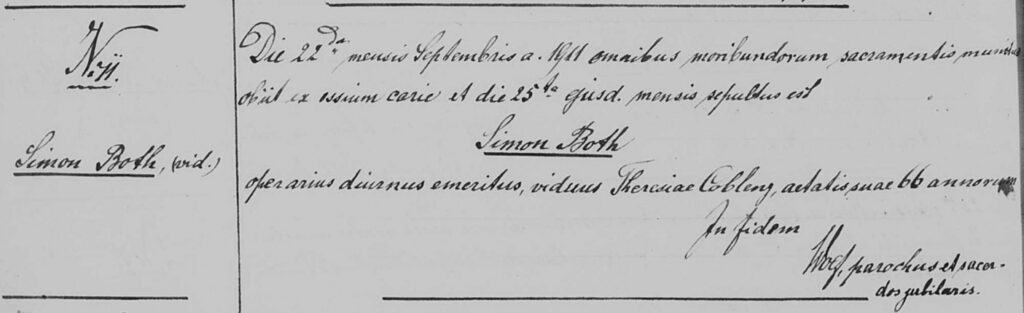 No. 11.
Simon Both, (vid.)
Die 22da mensis Septembris a. 1911 omnibus moribundorum sacramentis munitus
obiit ex ossium carie et die 25ta ejusd. mensis sepultus est
Simon Both
operarius diurnus emeritus, viduus Theresiae Coblenz, aetatis suae 66 annorum
In fidem
parochus et sacer-
dos jubilaris.